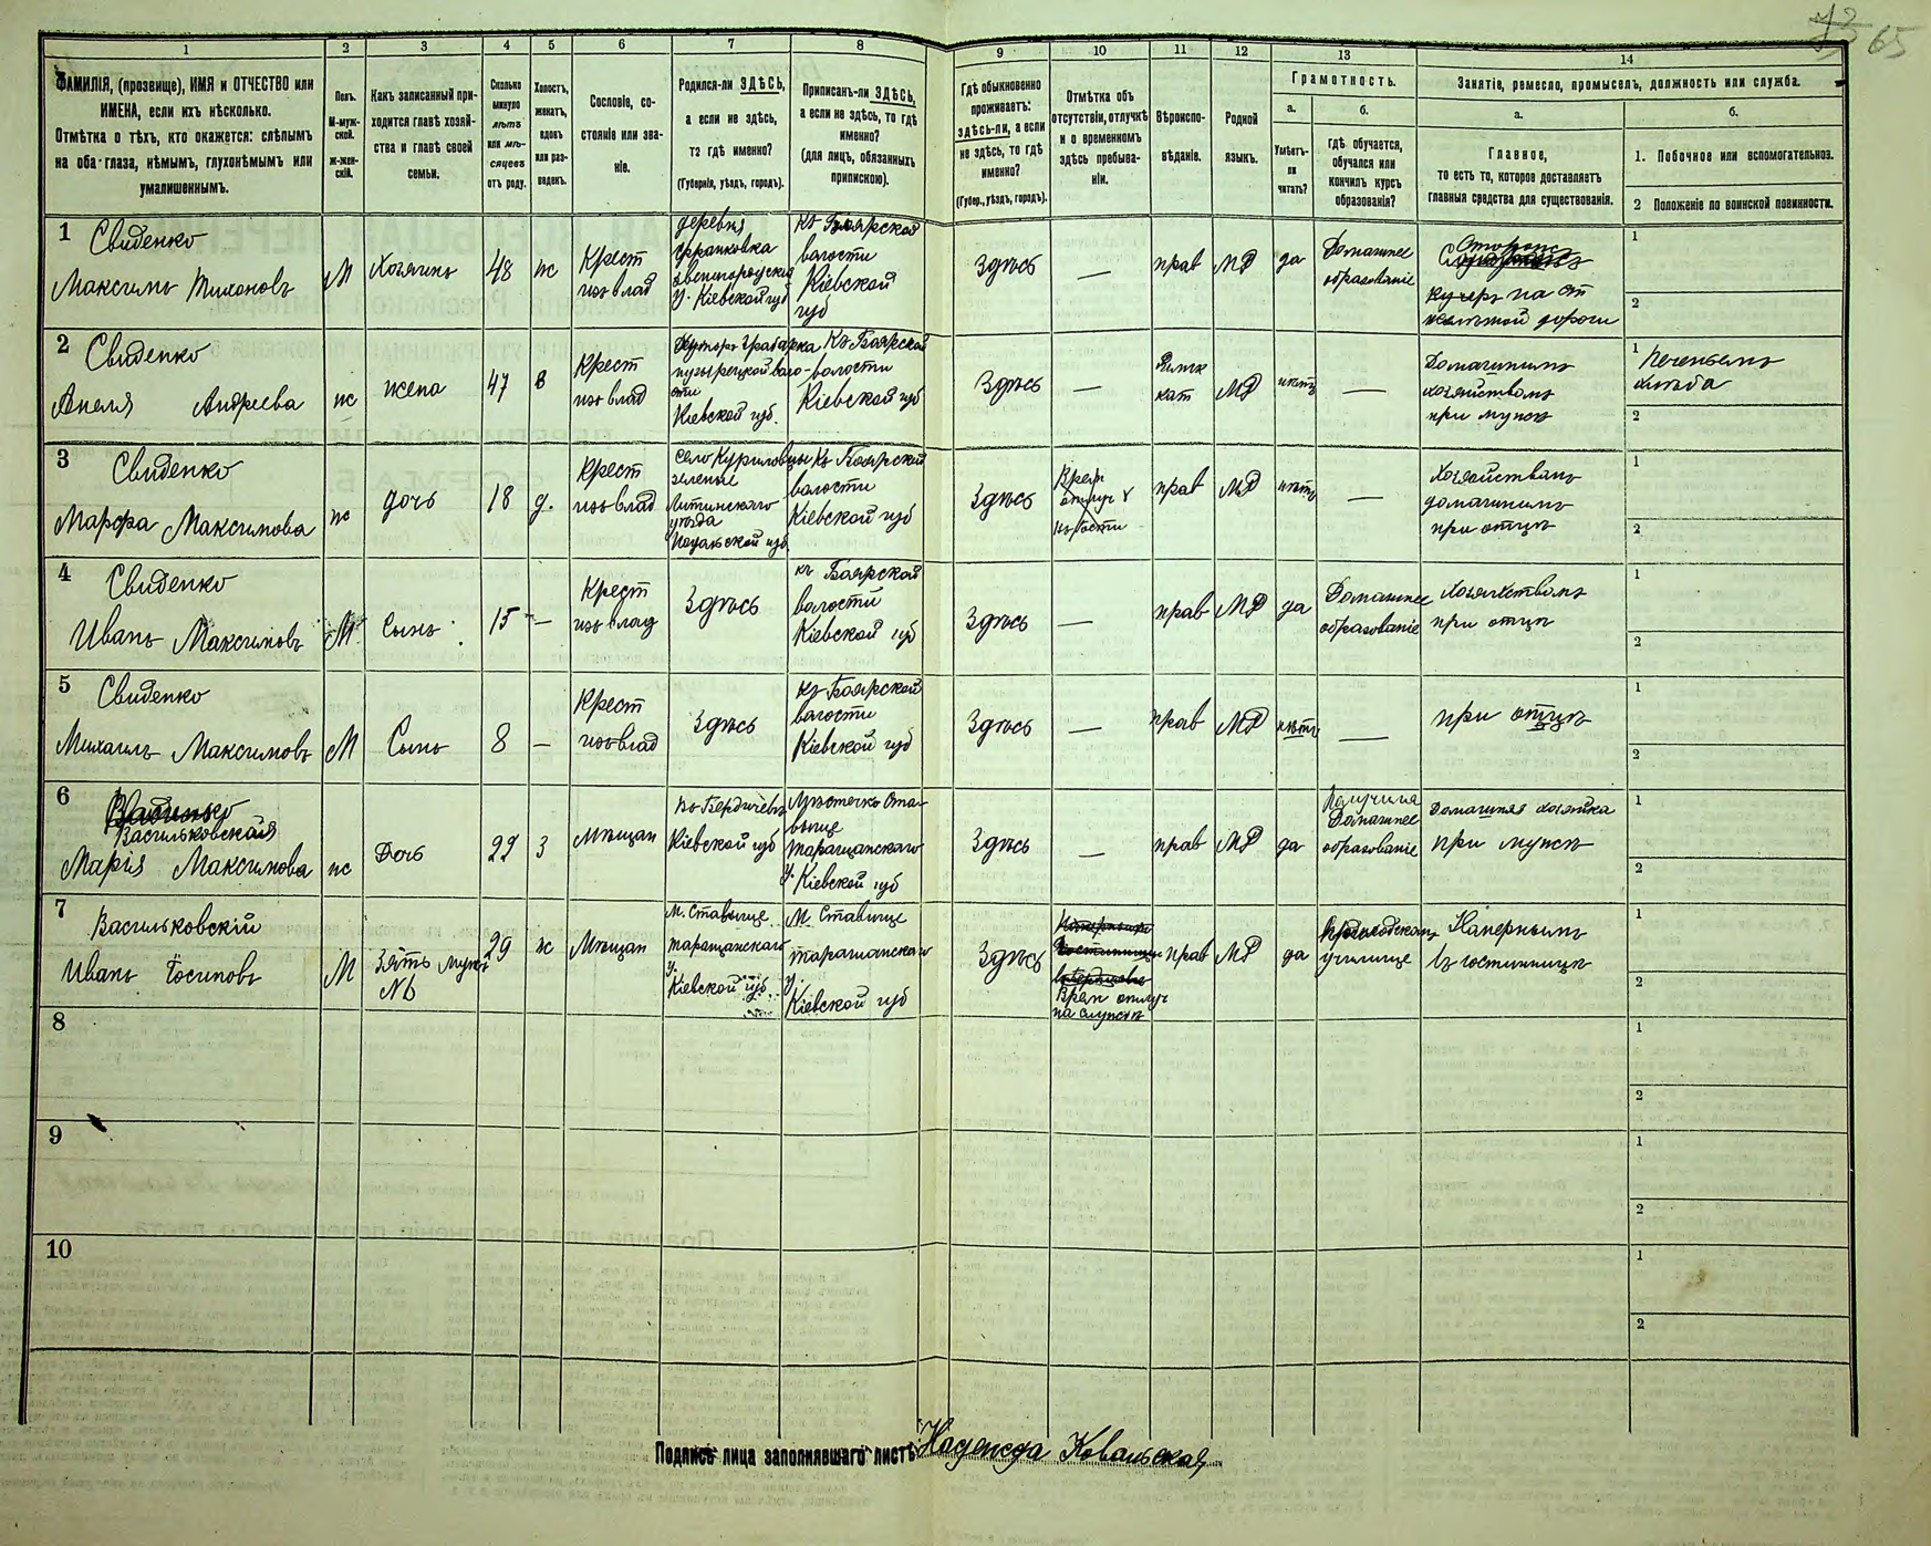 73 65
1 2 3 4 5 6 7 8 9 10 11 12 13 14
ФАМИЛІЯ, (прозвище), ИМЯ и ОТЧЕСТВО или
ИМЕНА, если ихъ нѣсколько.
Отмѣтка о тѣхъ, кто окажется: слѣпымъ
на оба глаза, нѣмымъ, глухонѣмымъ или
умалишеннымъ.
Полъ.
М-муж-
ской.
ж-жен-
скій.
Какъ записанный при-
ходится главѣ хозяй-
ства и главѣ своей
семьи.
Сколько
минуло
лѣтъ
или мѣ-
сяцевъ
отъ роду.
Холостъ,
женатъ,
вдовъ
или раз-
веденъ.
Сословіе, со-
стояніе или зва-
ніе.
Родился-ли ЗДѢСЬ,
а если не здѣсь,
то гдѣ именно?
(Губернія, уѣздъ, городъ).
Приписанъ-ли ЗДѢСЬ,
а если не здѣсь, то гдѣ
именно?
(для лицъ, обязанныхъ
припискою).
Гдѣ обыкновенно
проживаетъ:
здѣсь-ли, а если
не здѣсь, то гдѣ
именно?
(Губер., уѣздъ, городъ).
Отмѣтка объ
отсутствіи, отлучкѣ
и о временномъ
здѣсь пребыва-
ніи.
Вѣроиспо-
вѣданіе.
Родной
языкъ.
Грамотность.
а.
Умѣетъ-
ли
читать?
б.
гдѣ обучается,
обучался или
кончилъ курсъ
образованія?
Занятіе, ремесло, промыселъ, должность или служба.
а.
Главное,
то есть то, которое доставляетъ
главныя средства для существованія.
б.
1. Побочное или вспомогательное.
2 Положеніе по воинской повинности.
1 Свиденко
Максимъ Тихоновъ
М
Хозяинъ
48
ж
Крест
изъ влад
деревня
Франковка
Звенигородскаго
у. Кіевской губ
къ Боярской
волости
Кіевской
губ
Здѣсь
—
прав
МР
да
Домашнее
образованіе
желѣзной дороги
1
2
2 Свиденко
Анеля Андреева
ж
жена
47
з
Крест
изъ влад
Кіевской губ.
Къ Боярской
волости
Кіевской губ
Здѣсь
—
Римк
кат
МР
нѣтъ
—
Домашнимъ
хозяйствомъ
при мужѣ
1 Печеньемъ
хлѣба
2
3 Свиденко
Марфа Максимова
ж
дочь
18
д.
Крест
изъ влад
село Куриловцы
зеленые
Литинскаго
уѣзда
Подольской губ.
Къ Боярской
волости
Кіевской губ
Здѣсь
прав
МР
нѣтъ
—
Хозяйствомъ
домашнимъ
при отцѣ
1
2
4 Свиденко
Иванъ Максимовъ
М
Сынъ
15
—
Крест
изъ влад
Здѣсь
къ Боярской
волости
Кіевской губ
Здѣсь
—
прав
МР
да
Домашнее
образованіе
Хозяйствомъ
при отцѣ
1
2
5 Свиденко
Михаилъ Максимовъ
М
Сынъ
8
—
Крест
изъ влад
Здѣсь
къ Боярской
волости
Кіевской губ
Здѣсь
—
прав
МР
нѣтъ
—
при отцѣ
1
2
6
Васильковская
Марія Максимова
ж
Дочь
22
з
Мѣщан
въ Бердичевѣ
Кіевской губ
Мѣстечко Ста-
вище
таращанскаго
у. Кіевской губ
Здѣсь
—
прав
МР
да
Получила
Домашнее
образованіе
Домашняя хозяйка
при мужѣ
1
2
7 Васильковскій
Иванъ Іосиповъ
М
Зять мужъ
№6
29
ж
Мѣщан
м. Ставище
таращанскаго
у.
Кіевской губ.
М. Ставище
таращанскаго
у.
Кіевской губ
Здѣсь
Врем отлуч
на службѣ
прав
МР
да
училище
въ гостинницѣ
1
2
8
1
2
9
1
2
10
1
2
Подпись лица заполнявшаго листъ Надежда Ковальская